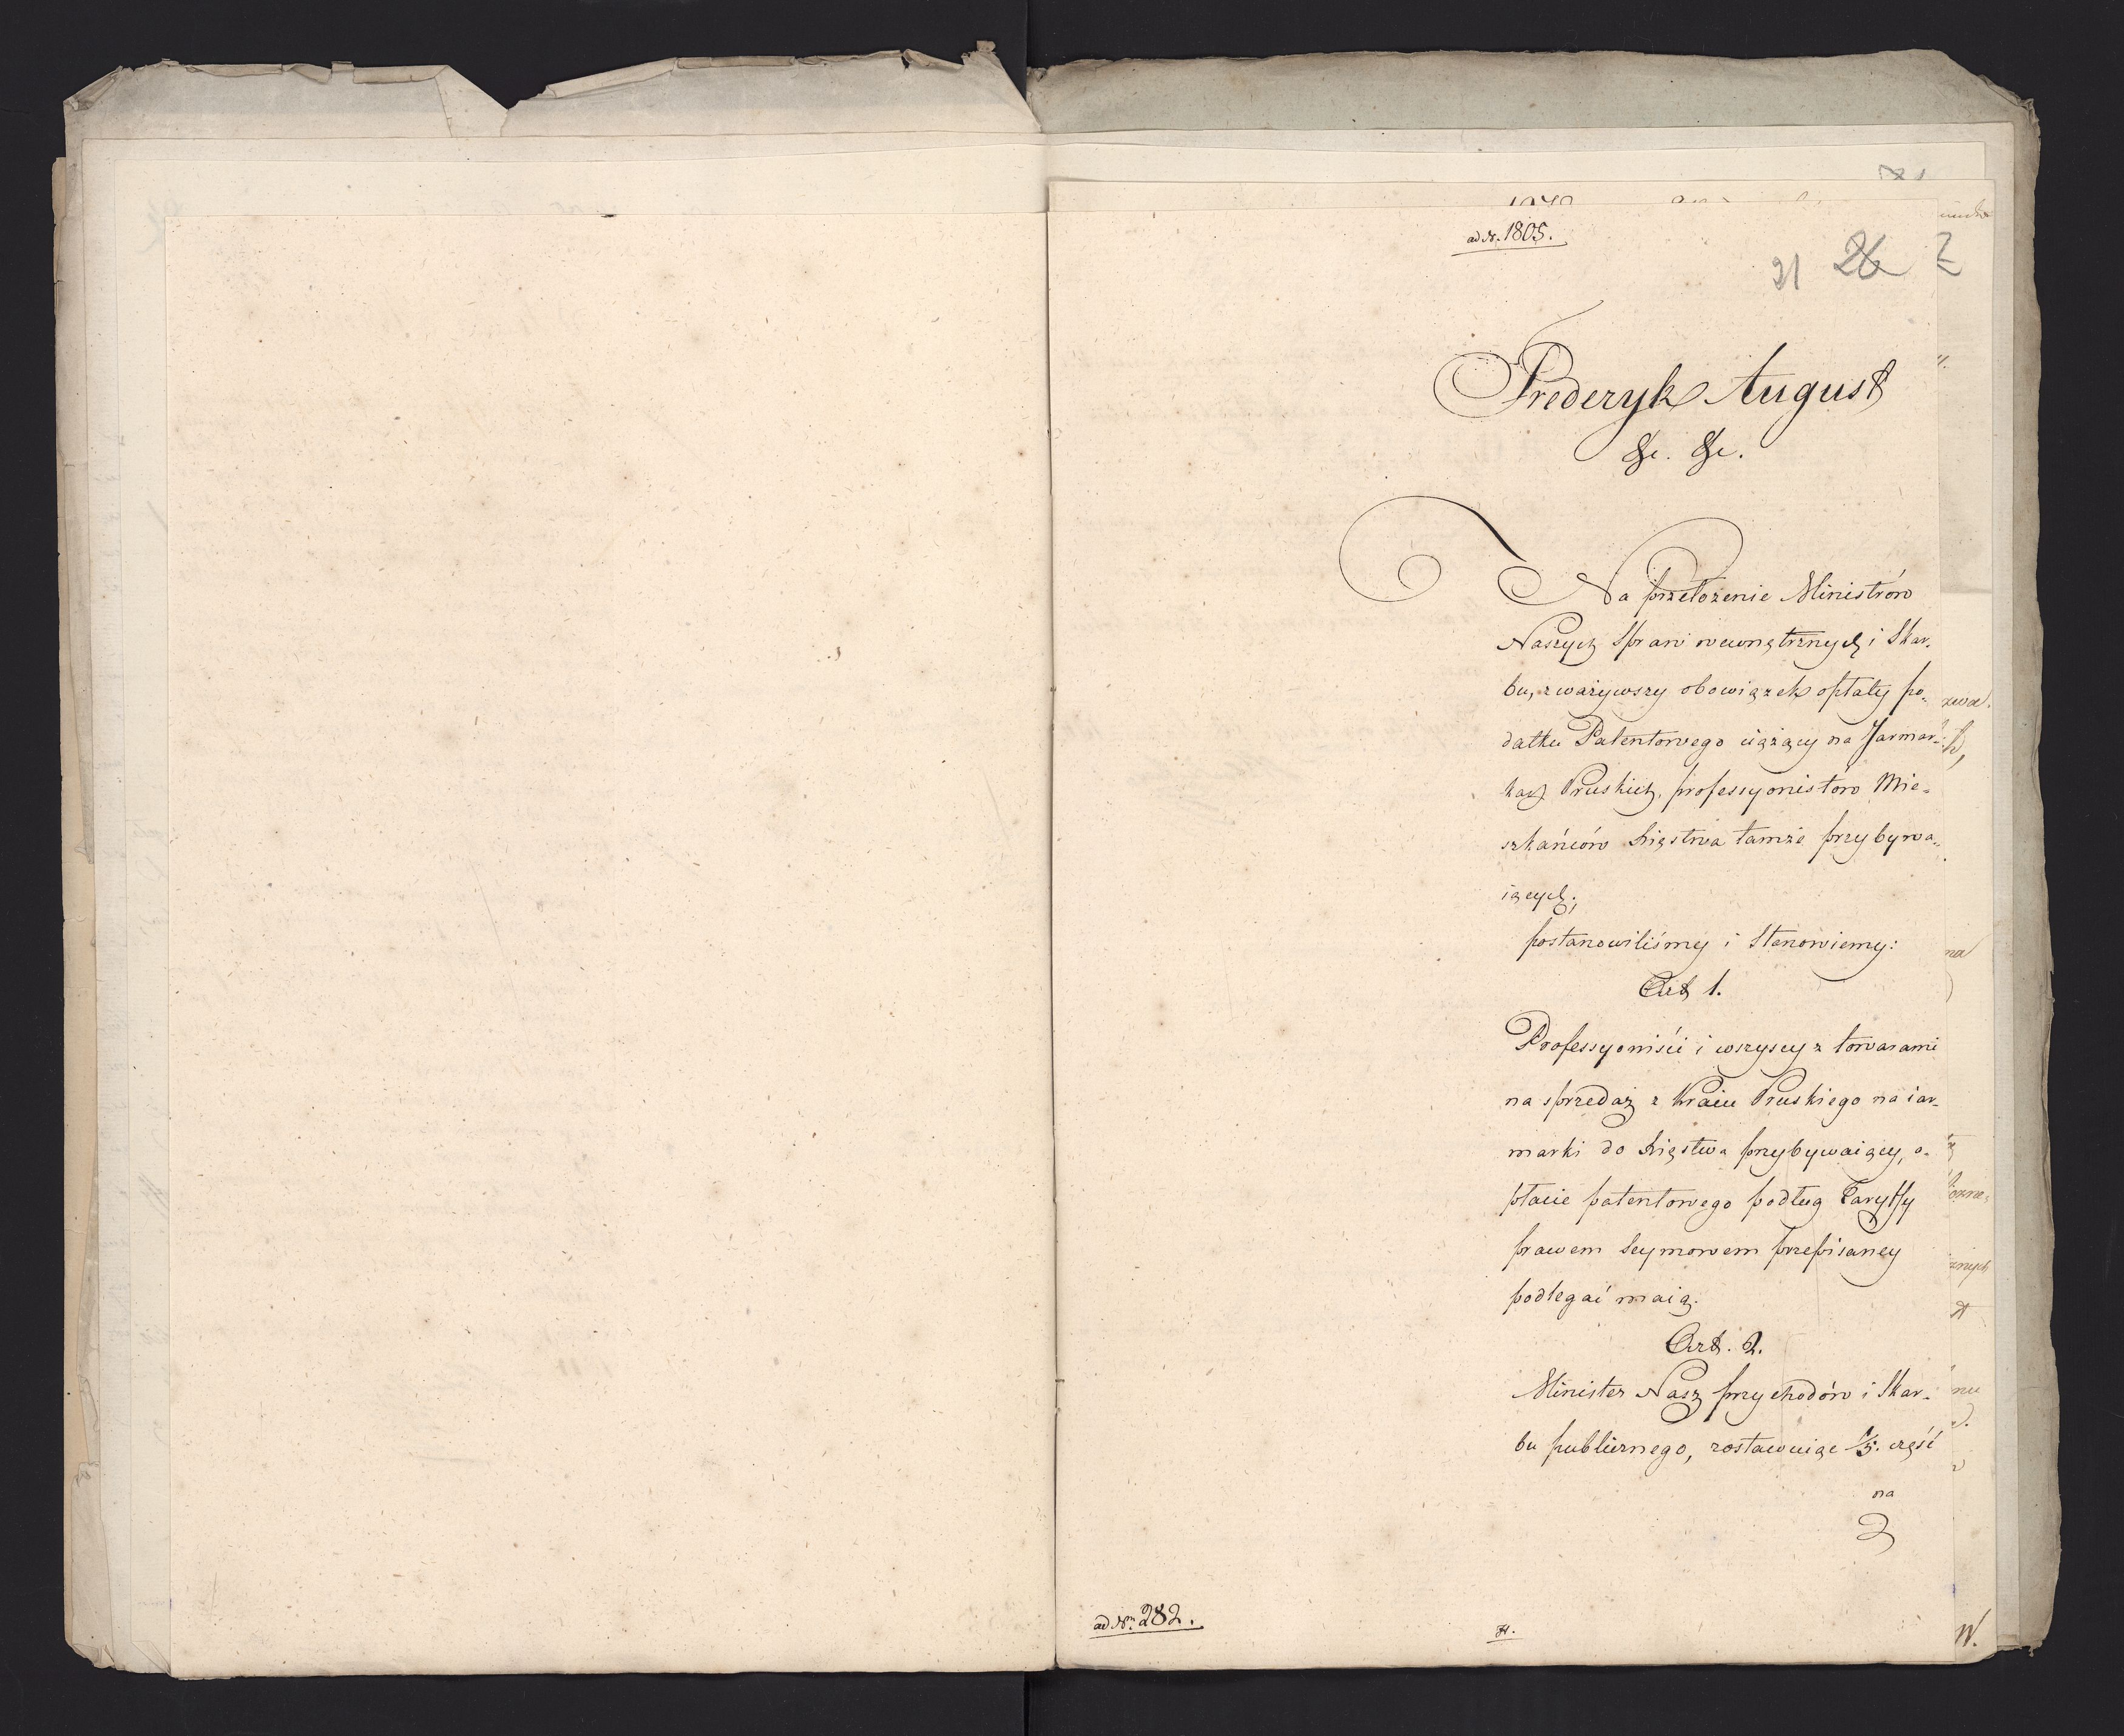 ad Nr. 1805.
21 26
Frederyk August
&c. &c.
Na przełożenie Ministrów
Naszych Spraw wewnętrznych i Skar-
bu, zważywszy obowiązek opłaty po-
datku Patentowego ciążący na Jarmar-
kach Pruskich, professyonistów Mie-
szkańców Xięstwa tamże przybywa-
iących;
postanowiliśmy i Stanowiemy:
Art 1.
Professyoniści i wszyscy z towarami
na sprzedaż z Kraiu Pruskiego na iar-
marki do Xięstwa przybywaiący, o-
płacie patentowego podług Taryffy
prawem Seymowem przepisaney
podlegać maią.
Art. 2.
Minister Nasz przychodów i Skar-
bu publicznego, zostawuiąc 1/5. część
na
ad Nr. 282.